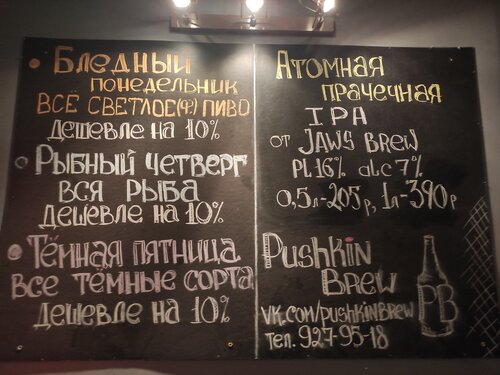 Бледный
понедельник
ВСЁ СВЕТЛОЕ(Ф) ПИВО
дешевле на 10%
Рыбный четверг
вся рыба
дешевле на 10%
Тёмная пятница
все тёмные сорта
дешевле на 10%
Атомная
прачечная
IPA
от JAWS BREW
Pl.16% alc 7%
0,5л-205р, 1л-390р
Pushkin
Brew
vk.com/pushkinbrew
PB
тел. 927-95-18